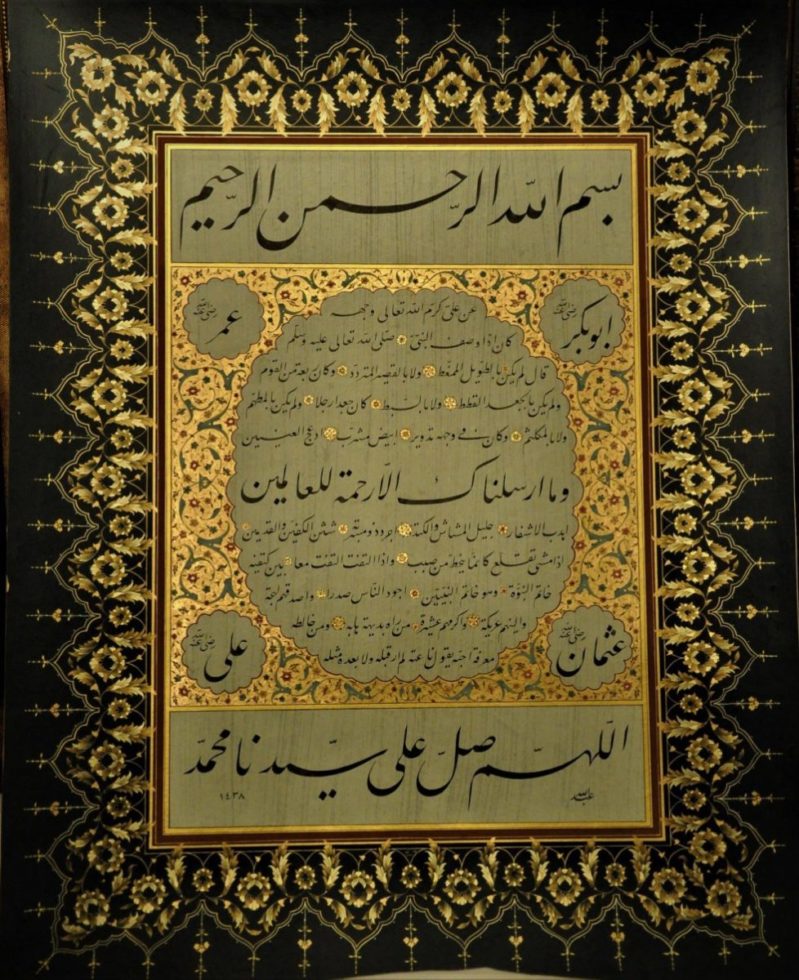 بسم الله الرّحمن الرّحيم
ابوبكر رضي الله عنه
عمر رضي الله عنه
عن علىّ كرّم الله تعالى وجهه
كان اذا وصف النبىّ صلّى الله تعالى عليه وسلّم
قال لم يكن بالطّويل الممغّط ولا بالقصير المتردّد وكان ربعة من القوم
ولم يكن بالجعد القطط ولا بالسّبط كان جعدا رجلا ولم يكن بالمطهّم
ولا بالمكلثم وكان فى وجهه تدوير ابيض مشرّب ادعج العينين
وما ارسلناك الّا رحمة للعالمين
اهدب الاشفار جليل المشاش والكتد اجرد ذو مسربة شثن الكفّين والقدمين
اذا مشى تقلّع كانّما ينحطّ من صبب واذا التفت التفت معا بين كتفيه
خاتم النّبوّة وهو خاتم النّبيّين اجود النّاس صدرا واصدقهم لهجة
والينهم عريكة واكرمهم عشيرة من رآه بديهة هابه ومن خالطه
معرفة احبّه يقول ناعته لم ار قبله ولا بعده مثله
عثمان رضي الله عنه
على رضي الله عنه
اللّهمّ صلّ على سيّدنا محمّد
١٤٣٨